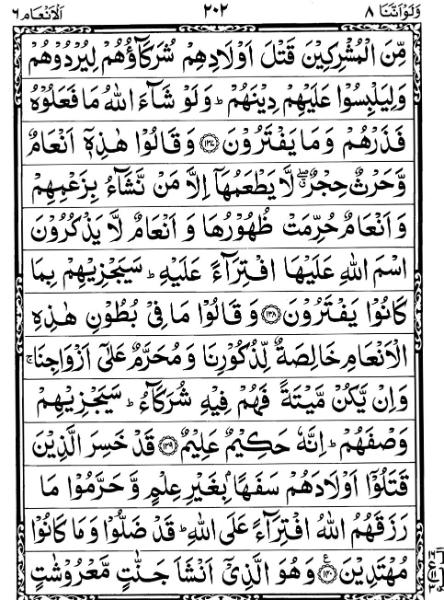 وَلَوْ اَنَّنَا ٨ ٢٠٢ اَلْاَنْعَام ٦
مِّنَ الْمُشْرِكِيْنَ قَتْلَ اَوْلَادِهِمْ شُرَكَآؤُهُمْ لِيُرْدُوْهُمْ
وَلِيَلْبِسُوْا عَلَيْهِمْ دِيْنَهُمْ ؕ وَلَوْ شَآءَ اللّٰهُ مَا فَعَلُوْهُ
فَذَرْهُمْ وَمَا يَفْتَرُوْنَ ﴿١٣٧﴾ وَقَالُوْا هٰذِهٖۤ اَنْعَامٌ
وَّحَرْثٌ حِجْرٌ ۖ لَّا يَطْعَمُهَاۤ اِلَّا مَنْ نَّشَآءُ بِزَعْمِهِمْ
وَاَنْعَامٌ حُرِّمَتْ ظُهُوْرُهَا وَاَنْعَامٌ لَّا يَذْكُرُوْنَ
اسْمَ اللّٰهِ عَلَيْهَا افْتِرَآءً عَلَيْهِ ؕ سَيَجْزِيْهِمْ بِمَا
كَانُوْا يَفْتَرُوْنَ ﴿١٣٨﴾ وَقَالُوْا مَا فِيْ بُطُوْنِ هٰذِهِ
الْاَنْعَامِ خَالِصَةٌ لِّذُكُوْرِنَا وَمُحَرَّمٌ عَلٰۤى اَزْوَاجِنَا ۚ
وَاِنْ يَّكُنْ مَّيْتَةً فَهُمْ فِيْهِ شُرَكَآءُ ؕ سَيَجْزِيْهِمْ
وَصْفَهُمْ ؕ اِنَّهٗ حَكِيْمٌ عَلِيْمٌ ﴿١٣٩﴾ قَدْ خَسِرَ الَّذِيْنَ
قَتَلُوْۤا اَوْلَادَهُمْ سَفَهًۢا بِغَيْرِ عِلْمٍ وَّحَرَّمُوْا مَا
رَزَقَهُمُ اللّٰهُ افْتِرَآءً عَلَى اللّٰهِ ؕ قَدْ ضَلُّوْا وَمَا كَانُوْا
مُهْتَدِيْنَ ﴿١٤٠﴾ ع وَهُوَ الَّذِيْۤ اَنْشَاَ جَنّٰتٍ مَّعْرُوْشٰتٍ